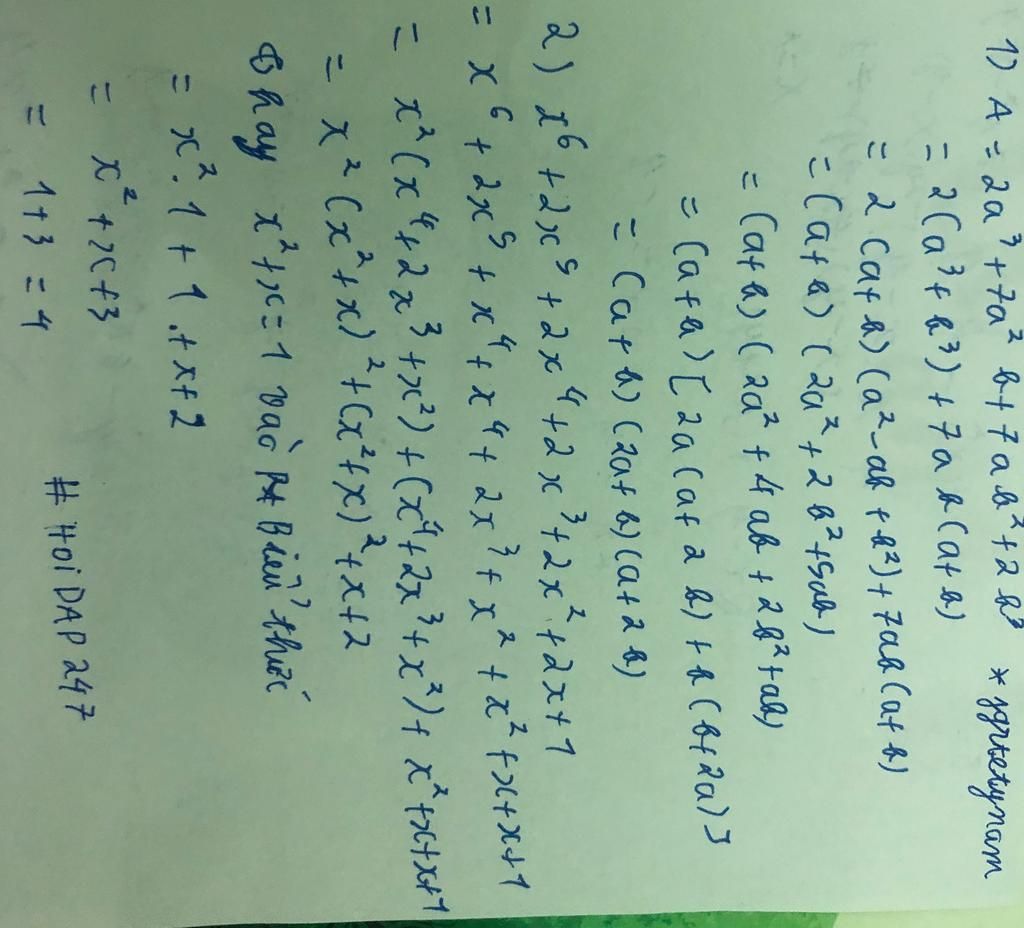 1) A = 2a³ + 7a² b + 7 ab² + 2 b³ *
= 2(a³ + b³) + 7a b (a + b)
= 2 (a + b) (a² - ab + b²) + 7ab (a + b)
= (a + b) (2a² + 2b² + 5ab)
= (a + b) (2a² + 4ab + 2b² + ab)
= (a + b) [2a (a + 2 b) + b (b + 2a)]
= (a + b) (2a + b) (a + 2 b)
2) x⁶ + 2x⁵ + 2x⁴ + 2x³ + 2x² + 2x + 1
= x⁶ + 2x⁵ + x⁴ + x⁴ + 2x³ + x² + x² + x + x + 1
= x² (x⁴ + 2x³ + x²) + (x⁴ + 2x³ + x²) + x² + x + x + 1
= x² (x² + x)² + (x² + x)² + x + 2
Thay x² + x = 1 vào Biểu thức
= x² . 1 + 1 + x + 2
= x² + x + 3
= 1 + 3 = 4
# HOIDAP 247